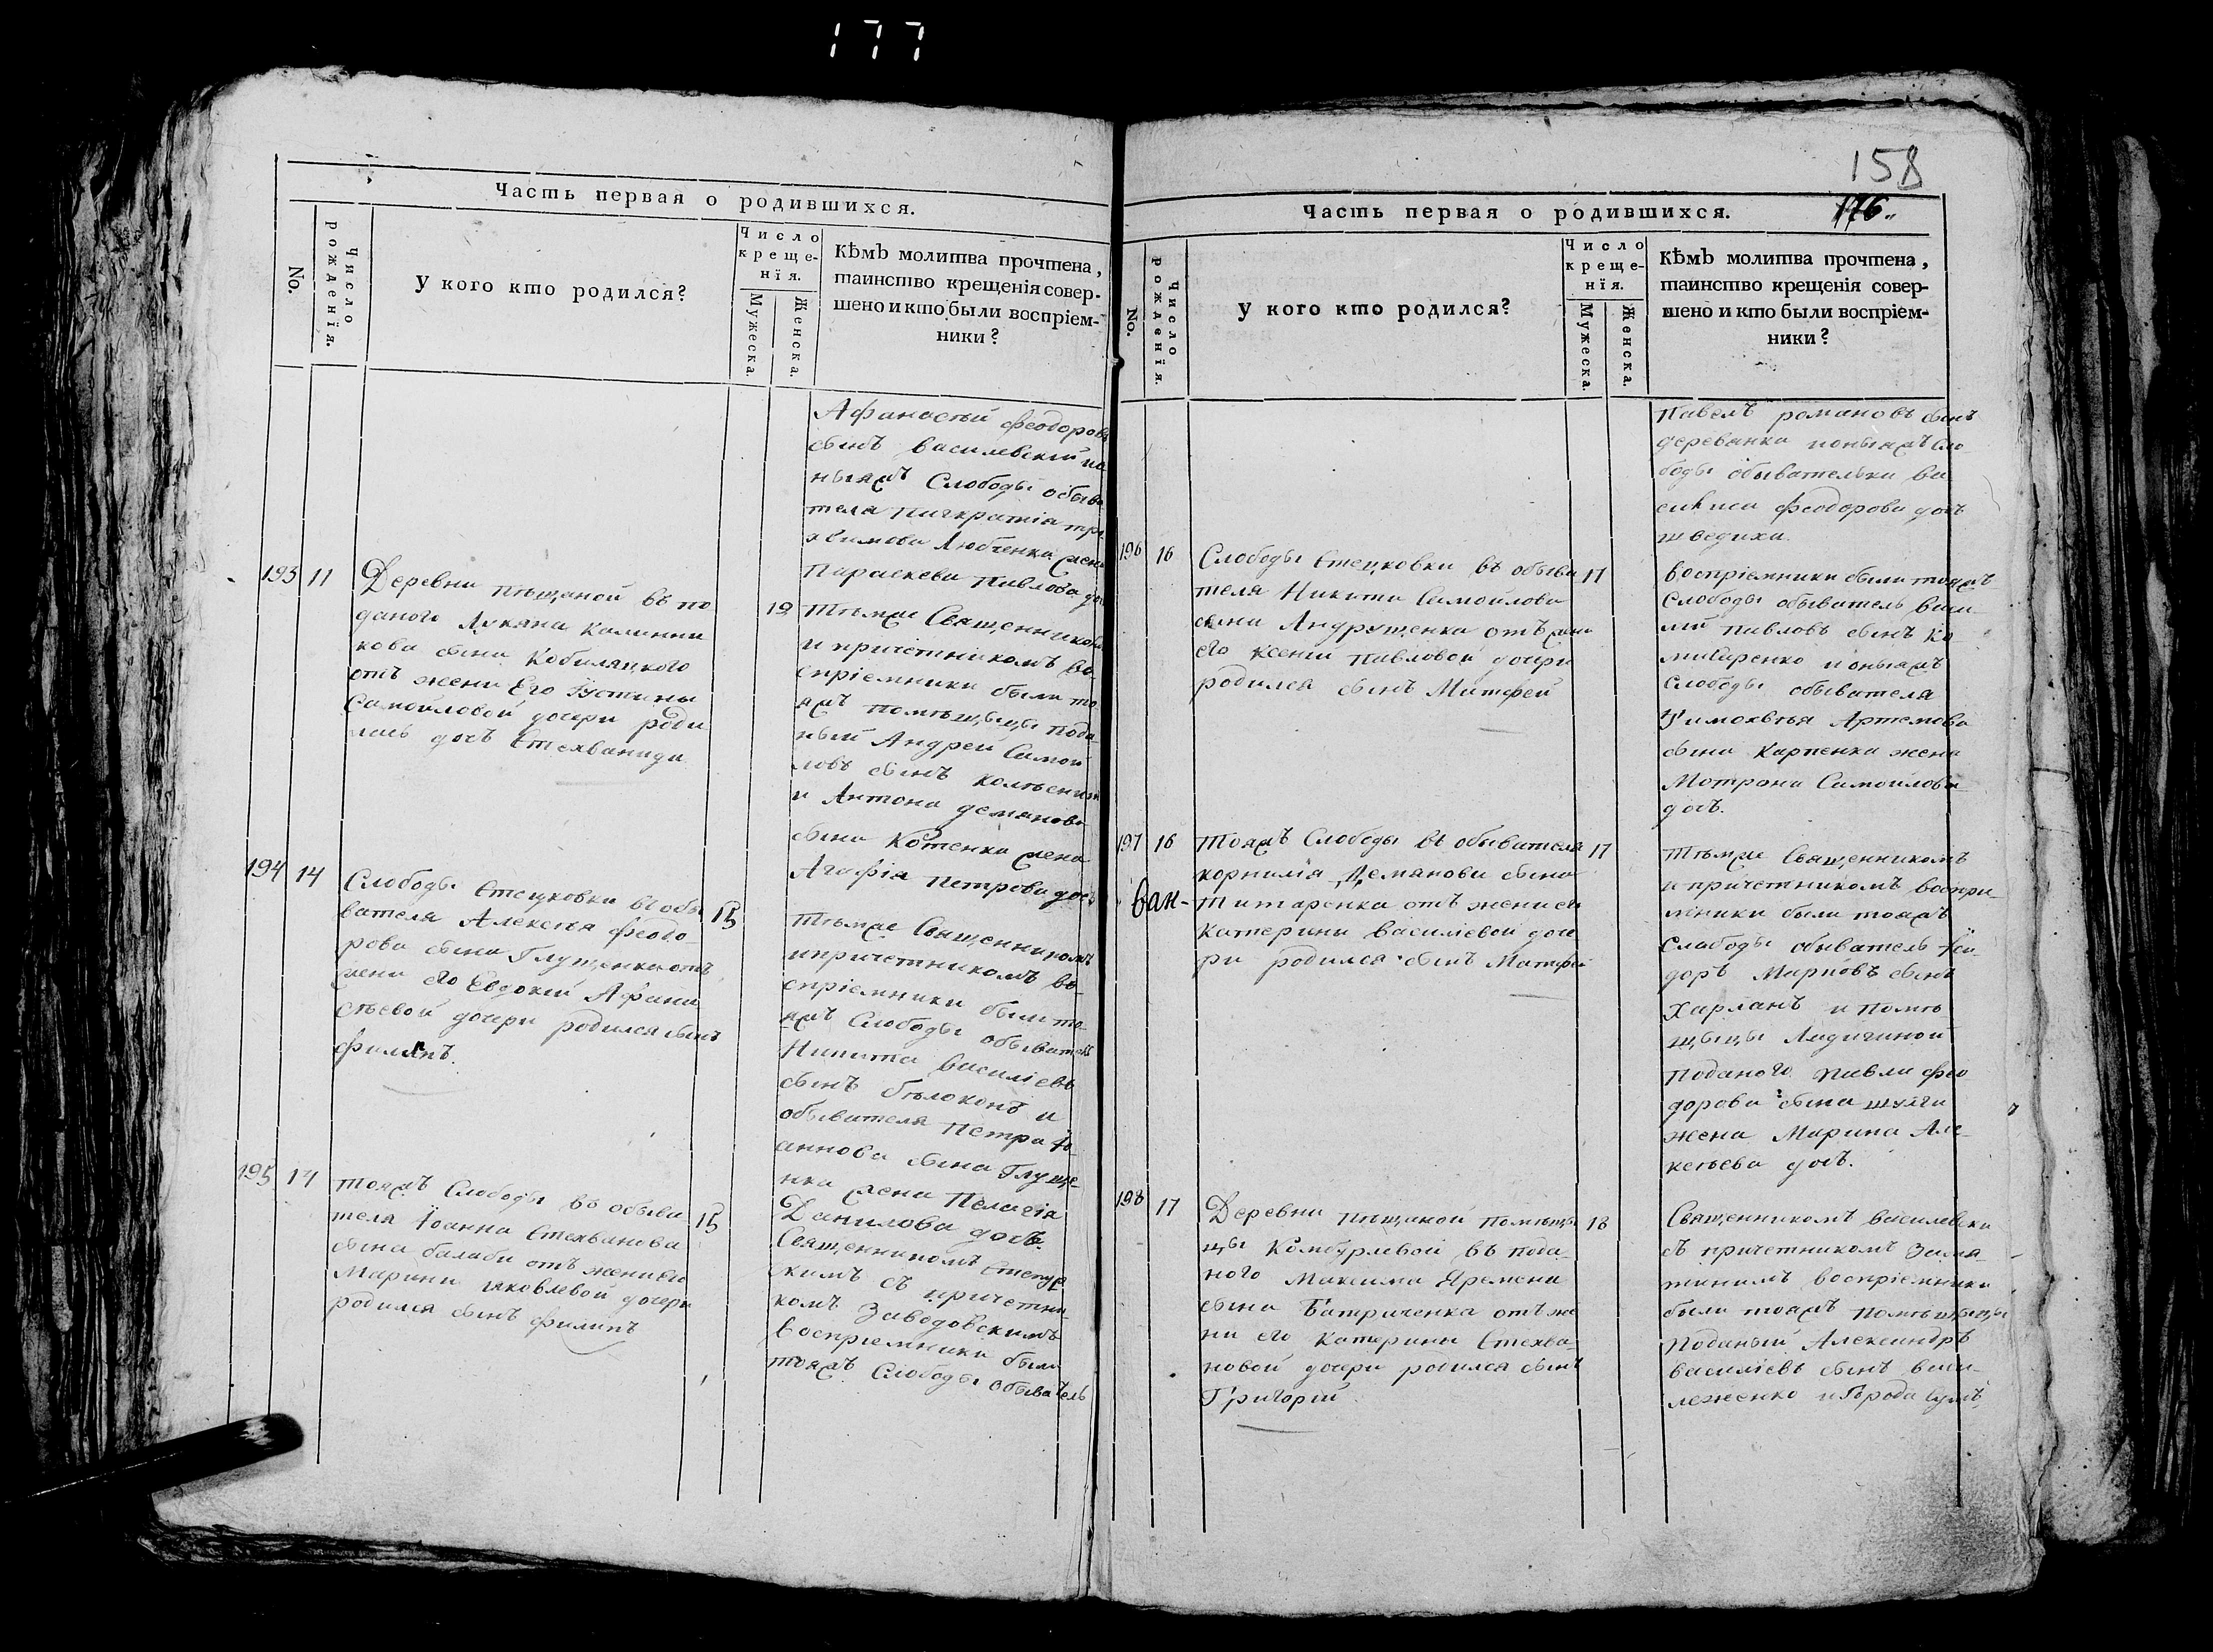 177
Часть первая о родившихся.
No.
Число рожденїя.
У кого кто родился?
Число креще-нїя.
Мужеска.
Женска.
Кѣмъ молитва прочтена,
таинство крещенія совер-
шено и кто были воспріем-
ники?
Афанасѣй Феодоровъ
сынъ Василевскій и о
ныяжъ Слободы обыва
теля
Любченка жена
Параскева Павлова доч
193 11
Деревни Пѣщаной въ по
даного Лукяна Калинни
кова сына Кобиляцкого
отъ жени Его Іустины
Самоиловой дочери роди
лась дочъ Стехванида
12
Тѣмже Священникомъ
и причетникомъ во
спріемники были то
яжъ помѣщицы пода
ный Андрей Самои
ловъ сынъ
и Антона Демянова
сына Котенка жена
Агафія Петрова дочъ
194 14
Слободы Стецковки въ обы
вателя Алексѣя Феодо-
рова сына Глущенка отъ
жени его Евдокіи Афана
сѣевой дочери родился сынъ
Филипъ.
15
Тѣмже Священникомъ
и причетникомъ во
спріемники были то
яжъ Слободы обыватель
Никита Василіевъ
сынъ Бѣлоконъ и
обывателя Петра Іо
аннова сына Глуще-
нка жена Пелагія
Данилова дочъ.
195 14
Тояжъ Слободы въ обыва
теля Іоанна Стехванова
сына Балаби отъ жени его
Марини Яковлевой дочери
родился сынъ Филипъ
15
Священникомъ
кимъ съ причетни
комъ Заводовскимъ
воспріемники были
тояжъ Слободы обыватель
158
176.
Часть первая о родившихся.
No.
Число рожденїя.
У кого кто родился?
Число креще-нїя.
Мужеска.
Женска.
Кѣмъ молитва прочтена,
таинство крещенія совер-
шено и кто были воспріем-
ники?
Павелъ Романовъ сынъ
Деревянка и оныяжъ Сло
боды обывателька Ва
силиса Феодорова дочъ
Шведиха.
196 16
Слободы Стецковки въ обыва
теля Никити Самоилова
сына Андрущенка отъ жени
его Ксеніи Павловой дочери
родился сынъ Матфей
17
воспріемники были тояжъ
Слободы обыватель Васи
лій Павловъ сынъ Ко
мисаренко и оныяжъ
Слободы обывателя
Тимохвѣя Артемова
сына Карпенка жена
Мотрона Самоилова
дочъ.
197 16
Тояжъ Слободы въ обывателя
Корнилія Демянова сына
Титаренка отъ жени его
Катерини Василіевой доче
ри родился сынъ Матфей
ван-
17
Тѣмже Священникомъ
и причетникомъ воспри
мники были тояжъ
Слабоды обыватель
доръ Марковъ сынъ
Харланъ и помѣ
щицы
поданого Павла Фео
дорова сына Шулги
жена Марина Але-
ксѣева дочъ.
198 17
Деревни Пѣщаной помѣщи
цы Комбурлевой въ пода-
ного Максима Яремена
сына отъ же
ни его Катерины Стехва-
новой дочери родился сынъ
Григорій.
18
Священникомъ Василевски
съ причетникомъ
воспріемники
были тояжъ помѣщицы
поданый Александръ
Василіевъ сынъ Васи-
леженко и Города Сумъ